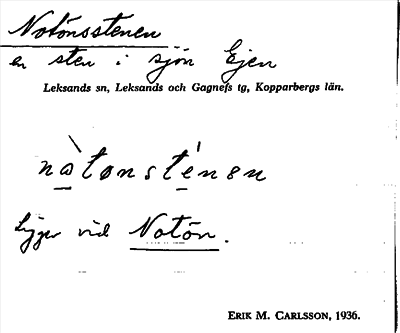 Notönsstenen
en sten i sjön Ejen
Leksands sn, Leksands och Gagnefs tg, Kopparbergs län.
nàtønsténen
Ligger vid Notön.
ERIK M. CARLSSON, 1936.